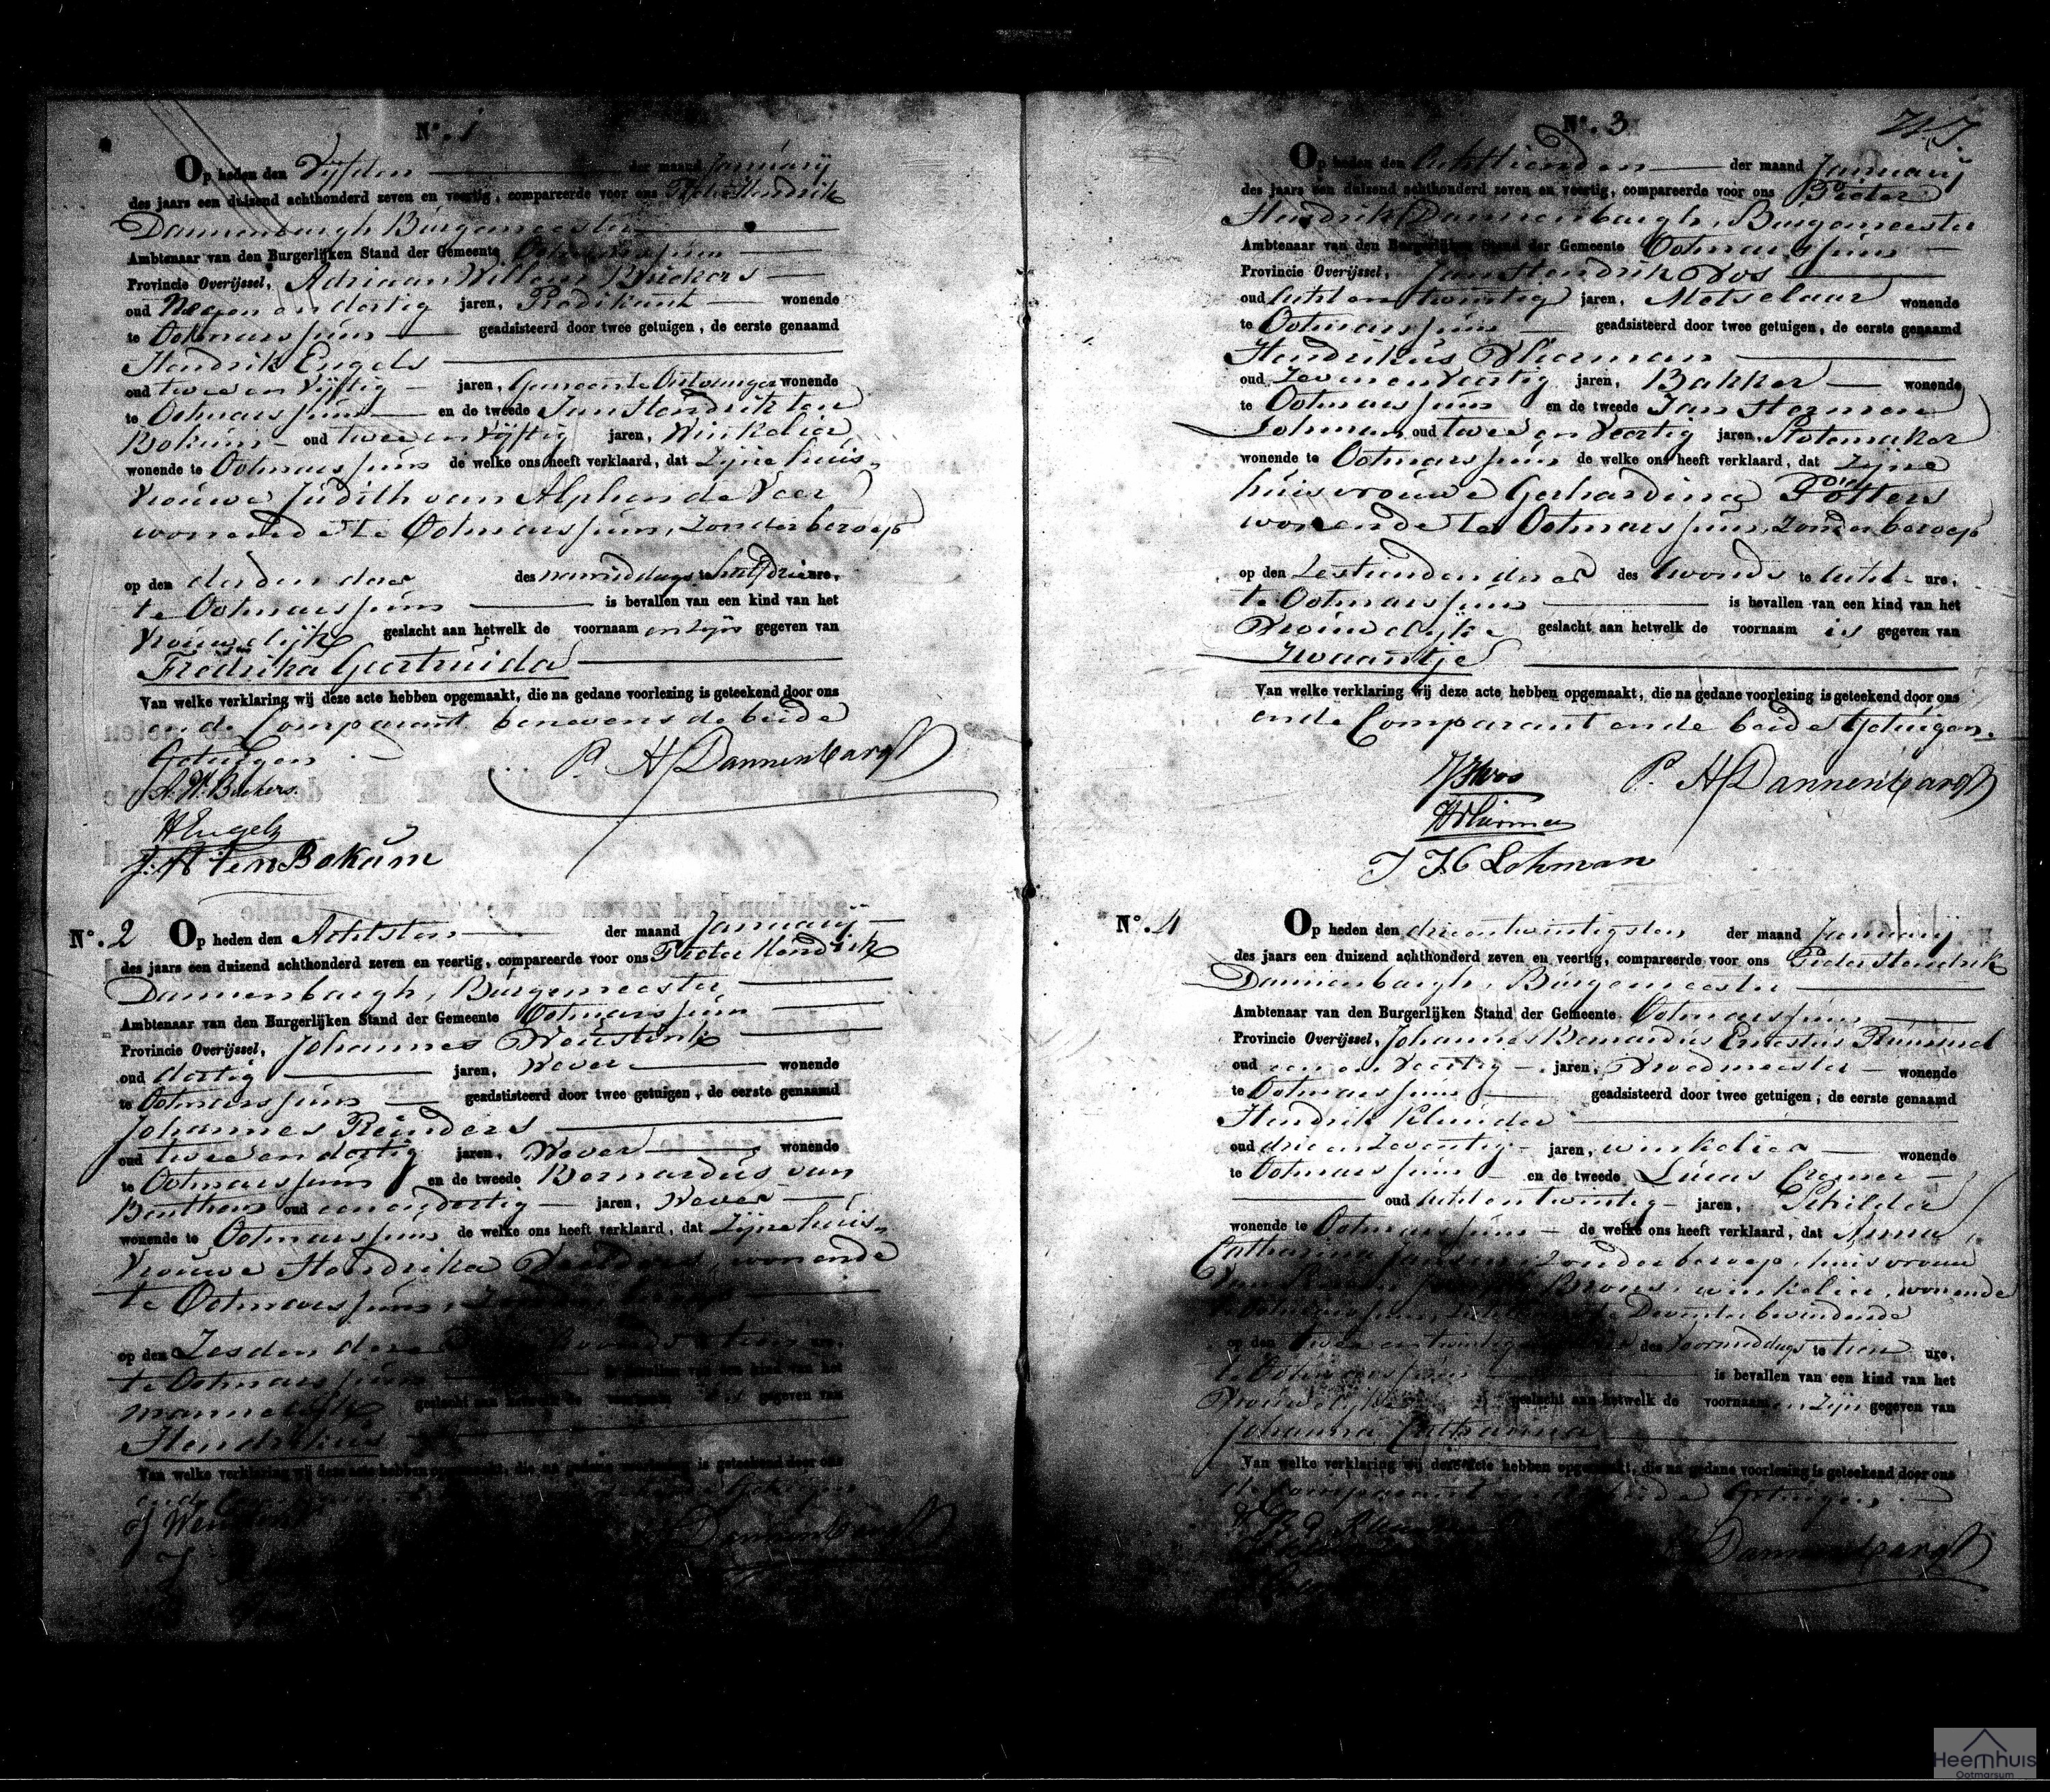 N°. 1
Op heden den Vijfden der maand Januarij
des jaars een duizend achthonderd zeven en veertig, compareerde voor ons Pieter Hendrik
Dannenbargh Burgemeester
Ambtenaar van den Burgerlijken Stand der Gemeente Ootmarssum
Provincie Overijssel, Adriaan Willem Beekers
oud Negen en dertig jaren, Predikant wonende
te Ootmarssum geadsisteerd door twee getuigen, de eerste genaamd
Hendrik Engels
oud twee en Vijftig jaren, Gemeente Ontvanger wonende
te Ootmarssum en de tweede Jan Hendrik ten
Bokum oud twee en Vijftig jaren, Winkelier
wonende te Ootmarssum de welke ons heeft verklaard, dat Zijne huis
vrouwe Judith van Alphen de Veer
wonende te Ootmarssum, Zonder beroep
op den derden dezer des namiddags te half drie ure,
te Ootmarssum is bevallen van een kind van het
Vrouwelijke geslacht aan hetwelk de voornaam en Zijn gegeven van
Fredrika Geertruida
Van welke verklaring wij deze acte hebben opgemaakt, die na gedane voorlezing is geteekend door ons
en de Comparant benevens de beide
Getuigen
P. H. Dannenbargh
A. W. Beekers.
H Engels
J. H ten Bokum
N°. 2
Op heden den Achtsten der maand Januarij
des jaars een duizend achthonderd zeven en veertig, compareerde voor ons Pieter Hendrik
Dannenbargh, Burgemeester
Ambtenaar van den Burgerlijken Stand der Gemeente Ootmarssum
Provincie Overijssel, Johannes Weustink
oud dertig jaren, Wever wonende
te Ootmarssum geadsisteerd door twee getuigen, de eerste genaamd
Johannes Reinders
oud twee en dertig jaren, Wever wonende
te Ootmarssum en de tweede Bernardus van
Benthem oud een en dertig jaren, Wever
wonende te Ootmarssum de welke ons heeft verklaard, dat Zijne huis
vrouwe Hendrika wonende
te Ootmarssum, Zonder beroep
op den Zesden dezer des avonds tien ure,
te Ootmarssum is bevallen van een kind van het
mannelijke geslacht aan hetwelk de voornaam is gegeven van
Hendrikus
Van welke verklaring wij deze acte hebben opgemaakt, die na gedane voorlezing is geteekend door ons
en de Getuigen
Dannenbargh
N°. 3
Op heden den Achttienden der maand Januarij
des jaars een duizend achthonderd zeven en veertig, compareerde voor ons Pieter
Hendrik Dannenbargh, Burgemeester
Ambtenaar van den Burgerlijken Stand der Gemeente Ootmarssum
Provincie Overijssel, Jan Hendrik Vos
oud Acht en twintig jaren, Metselaar wonende
te Ootmarssum geadsisteerd door twee getuigen, de eerste genaamd
Hendrikus
oud Zeven en Veertig jaren, Bakker wonende
te Ootmarssum en de tweede Jan Herman
Lohman oud twee en Veertig jaren, Slotemaker
wonende te Ootmarssum de welke ons heeft verklaard, dat Zijne
huisvrouwe Gerhardina
wonende te Ootmarssum, Zonder beroep
op den Zestienden dezer des Avonds te Acht ure,
te Ootmarssum is bevallen van een kind van het
Vrouwelijke geslacht aan hetwelk de voornaam is gegeven van
Zwaantje
Van welke verklaring wij deze acte hebben opgemaakt, die na gedane voorlezing is geteekend door ons
en de Comparant en de beide Getuigen.
P. H. Dannenbargh
J H Lohman
N°. 4
Op heden den drieentwintigsten der maand Januarij
des jaars een duizend achthonderd zeven en veertig, compareerde voor ons Pieter Hendrik
Dannenbargh, Burgemeester
Ambtenaar van den Burgerlijken Stand der Gemeente Ootmarssum
Provincie Overijssel, Johannes Bernardus Ernestus
oud een en Veertig jaren, Vroedmeester wonende
te Ootmarssum geadsisteerd door twee getuigen, de eerste genaamd
Hendrik Klunder
oud drie en Zeventig jaren, winkelier wonende
te Ootmarssum en de tweede Lucas Cremer
oud Acht en twintig jaren, Schilder
wonende te Ootmarssum de welke ons heeft verklaard, dat Anna
Catharina Jansen, Zonder beroep, huisvrouw
winkelier, wonende
Deventer bevindende
op den twee en twintigsten des Voormiddags te tien ure,
te Ootmarssum is bevallen van een kind van het
Vrouwelijke geslacht aan hetwelk de voornaam en Zijn gegeven van
Johanna Catharina
Van welke verklaring wij deze acte hebben opgemaakt, die na gedane voorlezing is geteekend door ons
de Comparant en de beide Getuigen
Dannenbargh
Heemhuis
Ootmarsum